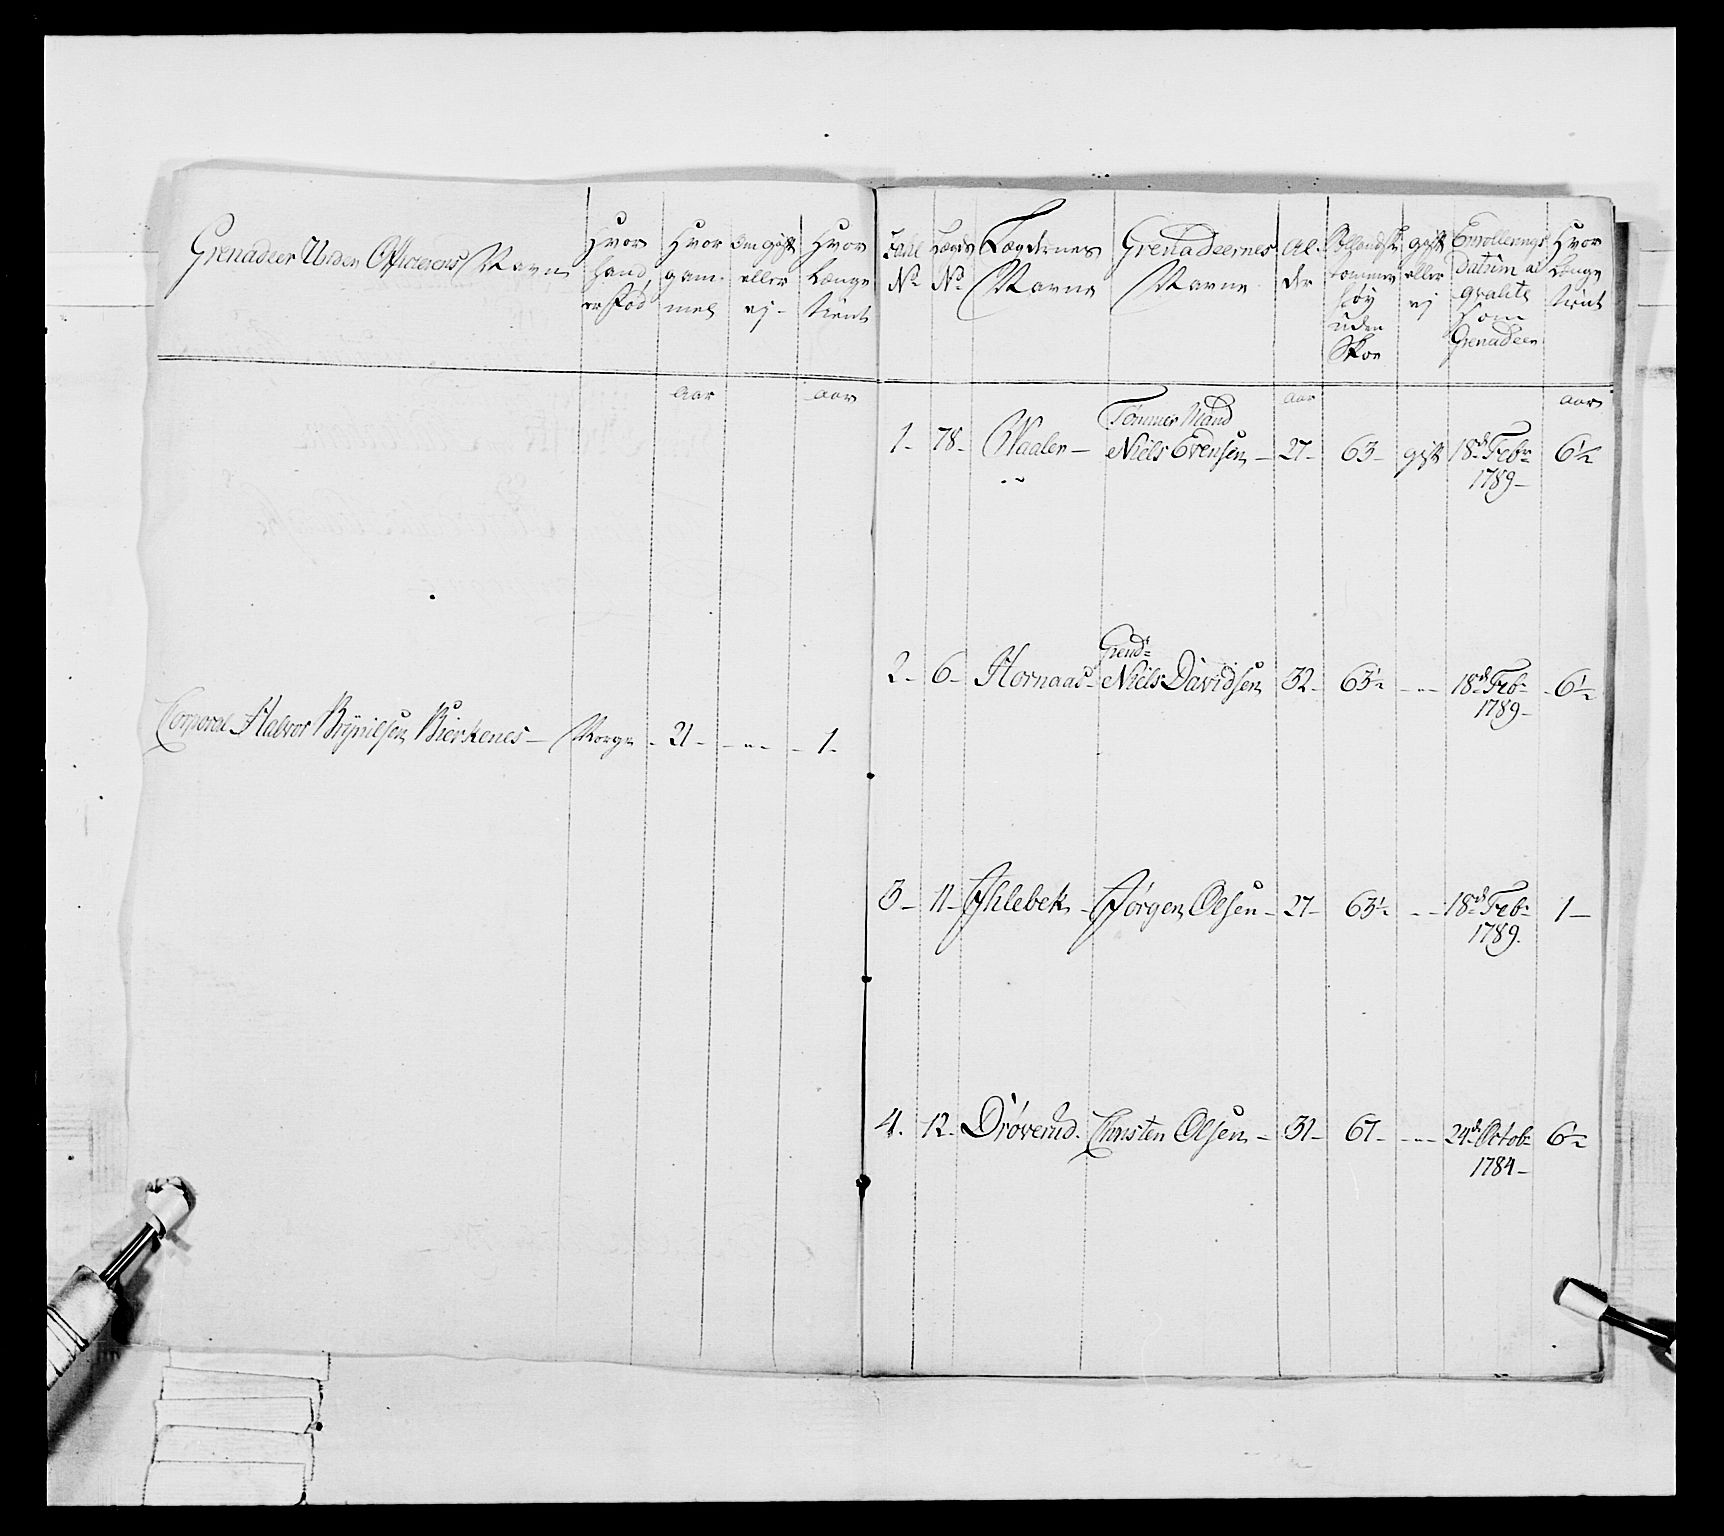 Grenadeer Under Officerers Navn
Hvor hand er Fød
Hvor gam- mel
Om gift eller ej-
Hvor Længe tient
Aar
aar
Corporal Halvor Brynilsen Bierkenes - Norge - 21 - - „ - - 1-
No
Lægds No
Lægdernes Navne
Grenadeernes Navne
Al- der
tommer høy uden Skoe
gift eller ej
Enrollerings Datum af qvalite som Grenadeer
Hvor Længe tient
aar
aar
1- 78- Waaler- Tømmer Mand
Niels Evensen - 27- 63- gift 18de Febr 6½
1789-
2- 6- Hornaas- Grend=
Niels Davidsen 32- 63½ - „ - 18de Feb 6½
1789-
3- 11- Ihlebek- Jørgen Olsen - 27- 63½ - „ - 18de Feb 1-
1789.
4. 12- Drøverud. Christen Olsen - 31- 67- - „ - 24de Octob
1784-